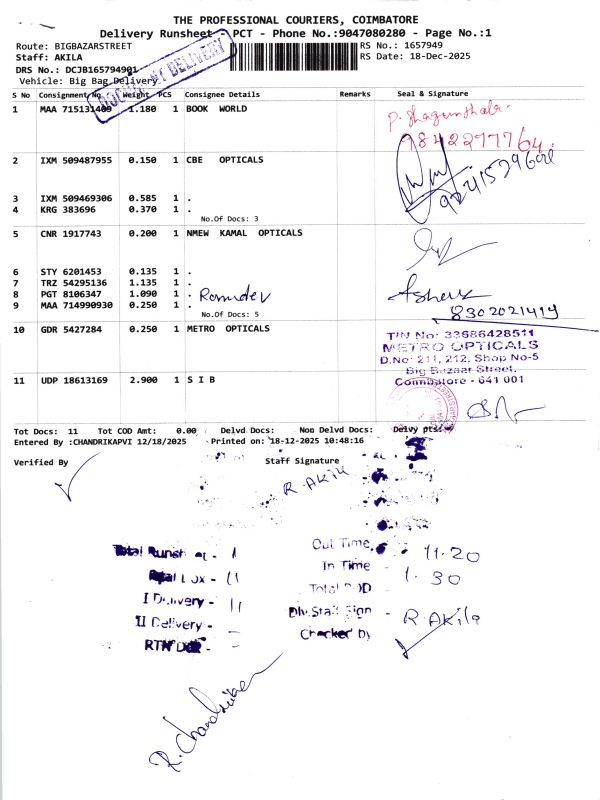 THE PROFESSIONAL COURIERS, COIMBATORE
Delivery Runsheet - PCT - Phone No.:9047080280 - Page No.:1
Route: BIGBAZARSTREET RS No.: 1657949
Staff: AKILA RS Date: 18-Dec-2025
DRS No.: DCJB165794901
Vehicle: Big Bag Delivery
DOCUMENT DELIVERY
S No Consignment No Weight PCS Consignee Details Remarks Seal & Signature
1 MAA 715131409 1.180 1 BOOK WORLD
9842277764
2 IXM 509487955 0.150 1 CBE OPTICALS
3 IXM 509469306 0.585 1 .
4 KRG 383696 0.370 1 .
No.Of Docs: 3
5 CNR 1917743 0.200 1 NMEW KAMAL OPTICALS
6 STY 6201453 0.135 1 .
7 TRZ 54295136 1.135 1 .
8 PGT 8106347 1.090 1 . Ramdev
9 MAA 714990930 0.250 1 .
No.Of Docs: 5
Ashok
8302021419
10 GDR 5427284 0.250 1 METRO OPTICALS
TIN No: 33686428511
METRO OPTICALS
D.No: 211, 212, Shop No-5
Big Bazaar Street,
Coimbatore - 641 001
11 UDP 18613169 2.900 1 S I B
Tot Docs: 11 Tot COD Amt: 0.00 Delvd Docs: Non Delvd Docs: Delvy pts:
Entered By :CHANDRIKAPVI 12/18/2025 Printed on: 18-12-2025 10:48:16
Verified By Staff Signature
R. AKIL
Total Runsheet - 1
Total Dox - 11
I Delivery - 11
II Delivery - -
RTN Dox - -
Out Time - 11.20
In Time - 1.30
Total POD -
Dlv.Staff Sign - R AKila
Checked by
R. Chandrika